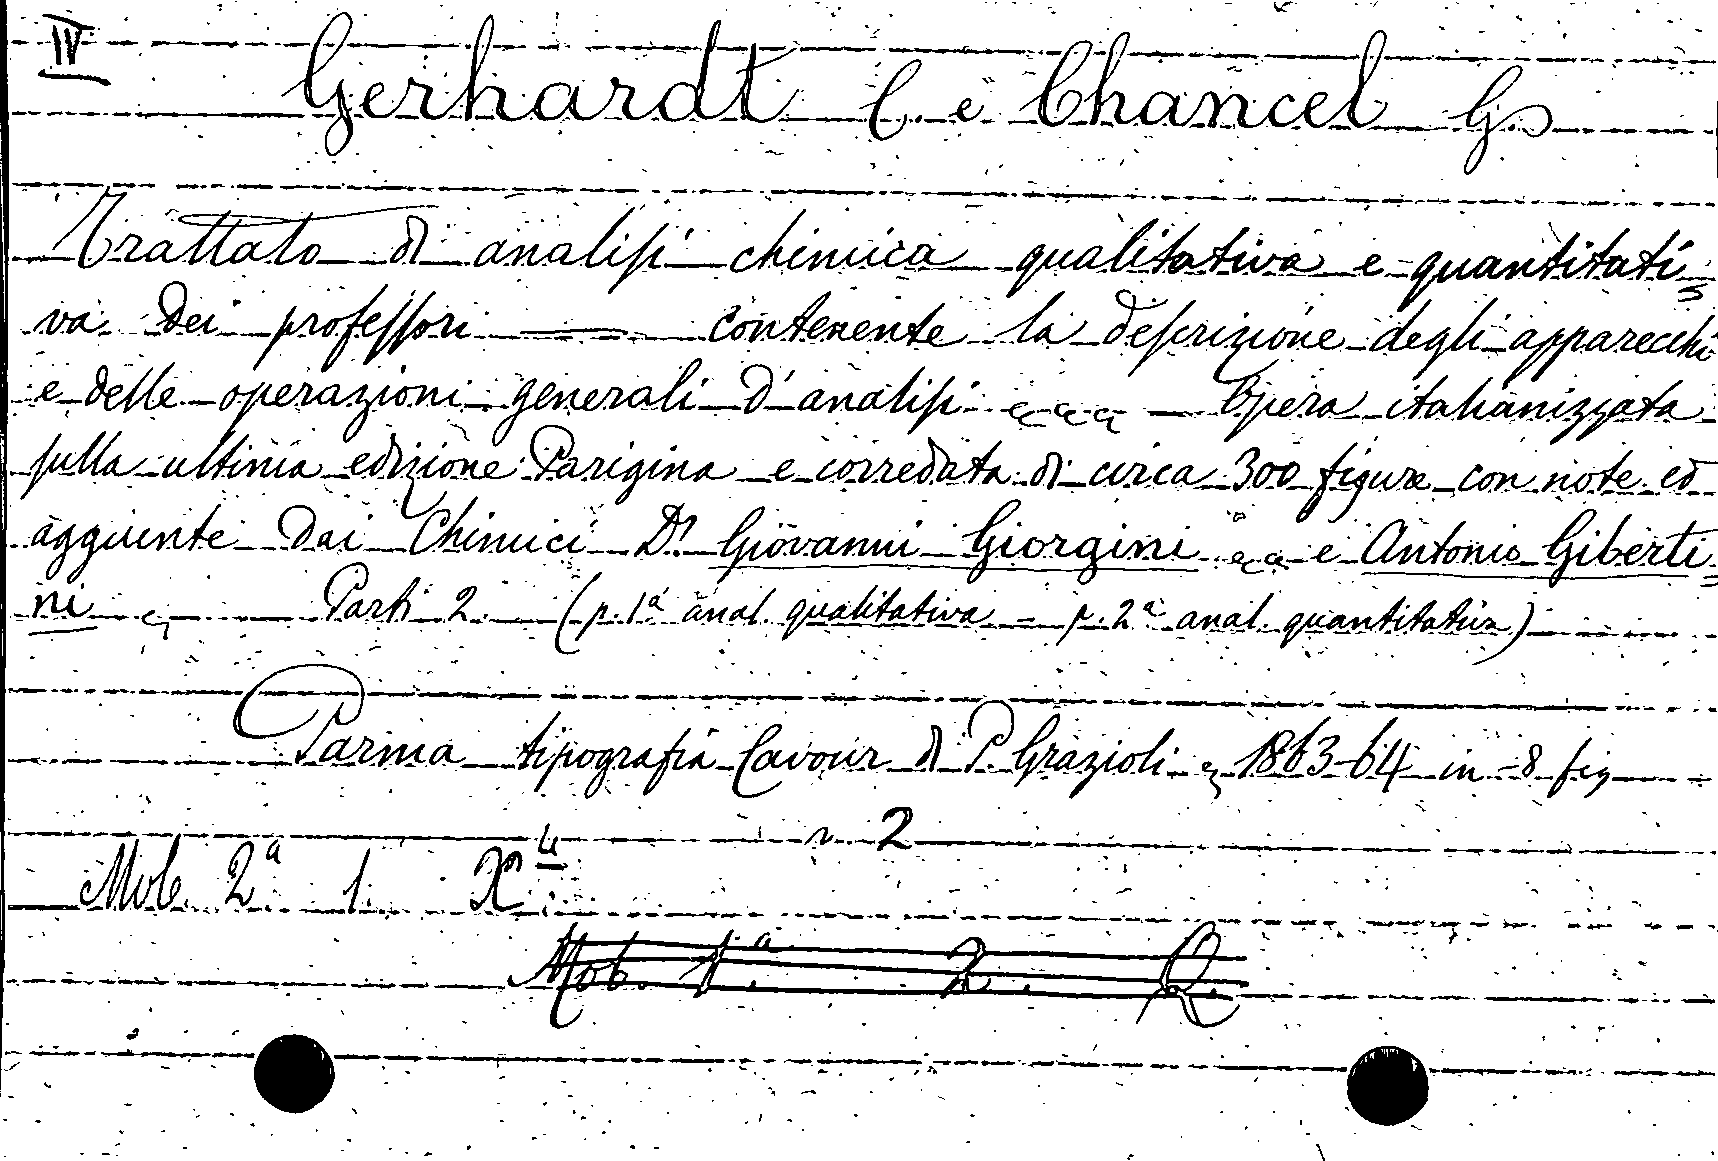 IV
Gerhardt C. e Chancel G.
Trattato di analisi chimica qualitativa e quantitati=
va dei professori —— contenente la descrizione degli apparecchi
e delle operazioni generali d'analisi &c &c &c — Opera italianizzata
sulla ultima edizione Parigina e corredata di circa 300 figure con note ed
aggiunte dai Chimici Dr Giovanni Giorgini &c &c e Antonio Giberti=
ni Parti 2. (p. 1a anal. qualitativa — p. 2a anal. quantitativa)
Parma tipografia Cavour di P. Grazioli 1863-64 in-8 fig
v. 2
Mob. 2a 1. X 4
Mob. 1a 2. R.